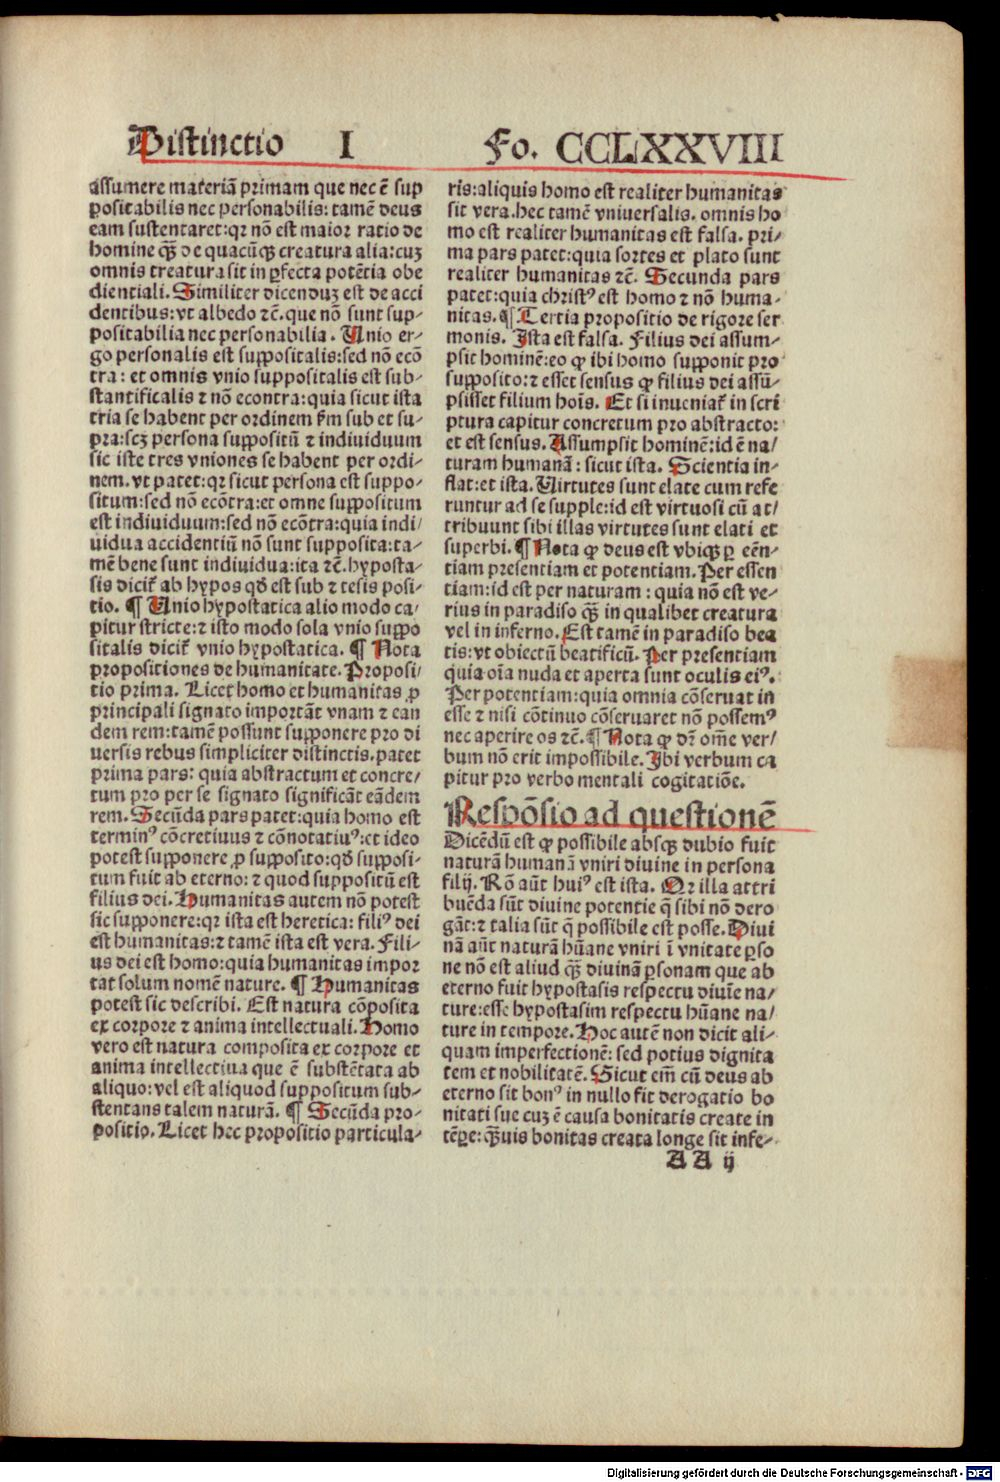 Distinctio I Fo. CCLXXVIII
assumere materiã primam que nec ẽ sup
positabilis nec personabilis: tamẽ deus
eam sustentaret: qꝛ nõ est maior ratio de
homine qȝ̃ de quacũqȝ creatura alia: cuȝ
omnis creatura sit in ꝑfecta potẽtia obe
dientiali. Similiter dicenduȝ est de acci
dentibus: vt albedo ⁊c̃. que nõ sunt sup⸗
positabilia nec personabilia. Unio er⸗
go personalis est suppositalis: sed nõ ecõ
tra: et omnis vnio suppositalis est sub⸗
stantificalis ⁊ nõ econtra: quia sicut ista
tria se habent per ordinem ẜm sub et su⸗
pra: scȝ persona suppositũ ⁊ individuum
sic iste tres vniones se habent per ordi⸗
nem. vt patet: qꝛ sicut persona est suppo⸗
situm: sed nõ ecõtra: et omne suppositum
est individuum: sed nõ ecõtra: quia indi⸗
uidua accidentiũ nõ sunt supposita: ta⸗
mẽ bene sunt individua: ita ⁊c̃. hyposta⸗
sis dicit̃ ab hypos qd̃ est sub ⁊ tesis posi⸗
tio. ¶ Unio hypostatica alio modo ca⸗
pitur stricte: ⁊ isto modo sola vnio suppo
sitalis dicit̃ vnio hypostatica. ¶ Nota
propositiones de humanitate. Proposi⸗
tio prima. Licet homo et humanitas ꝓ
principali signato importãt vnam ⁊ ean
dem rem: tamẽ possunt supponere pro di
uersis rebus simpliciter distinctis. patet
prima pars: quia abstractum et concre⸗
tum pro per se signato significãt eãdem
rem. Secũda pars patet: quia homo est
terminꝰ cõcretiuus ⁊ cõnotatiuꝰ: et ideo
potest supponere ꝓ supposito: qd̃ supposi⸗
tum fuit ab eterno: ⁊ quod suppositũ est
filius dei. Humanitas autem nõ potest
sic supponere: qꝛ ista est heretica: filiꝰ dei
est humanitas: ⁊ tamẽ ista est vera. Fili⸗
us dei est homo: quia humanitas impor
tat solum nomẽ nature. ¶ Humanitas
potest sic describi. Est natura cõposita
ex corpore ⁊ anima intellectuali. Homo
vero est natura composita ex corpore et
anima intellectiua que ẽ substẽtata ab
aliquo: vel est aliquod suppositum sub⸗
stentans talem naturã. ¶ Secũda pro⸗
positio. Licet hec propositio particula⸗
ris: aliquis homo est realiter humanitas
sit vera. hec tamẽ vniuersalis. omnis ho
mo est realiter humanitas est falsa. pri⸗
ma pars patet: quia sortes et plato sunt
realiter humanitas ⁊c̃. Secunda pars
patet: quia christꝰ est homo ⁊ nõ huma⸗
nitas. ¶ Tertia propositio de rigore ser
monis. Ista est falsa. Filius dei assum⸗
psit hominẽ: eo ꝙ ibi homo supponit pro
supposito: ⁊ esset sensus ꝙ filius dei assũ⸗
psisset filium hoĩs. Et si inueniat̃ in scri
ptura capitur concretum pro abstracto:
et est sensus. Assumpsit hominẽ: id ẽ na⸗
turam humanã: sicut ista. Scientia in⸗
flat: et ista. Uirtutes sunt elate cum refe
runtur ad se supple: id est virtuosi cũ at⸗
tribuunt sibi illas virtutes sunt elati et
superbi. ¶ Nota ꝙ deus est vbiqȝ ꝑ eẽn⸗
tiam presentiam et potentiam. Per essen
tiam: id est per naturam: quia nõ est ve⸗
rius in paradiso qȝ̃ in qualibet creatura
vel in inferno. Est tamẽ in paradiso bea
tis: vt obiectũ beatificũ. Per presentiam
quia oĩa nuda et aperta sunt oculis eiꝰ.
Per potentiam: quia omnia cõseruat in
esse ⁊ nisi cõtinuo cõseruaret nõ possemꝰ
nec aperire os ⁊c̃. ¶ Nota ꝙ dr̃ om̃e ver⸗
bum nõ erit impossibile. Ibi verbum ca
pitur pro verbo mentali cogitatiõe.
Respõsio ad questionẽ
Dicẽdũ est ꝙ possibile absqȝ dubio fuit
naturã humanã vniri divine in persona
filij. Rõ aũt huiꝰ est ista. Qꝛ illa attri
buẽda sũt divine potentie q̃ sibi nõ dero
gãt: ⁊ talia sũt q̃ possibile est posse. Divi
nã aũt naturã hũane vniri ĩ vnitate ꝑso
ne nõ est aliud qȝ̃ divinã ꝑsonam que ab
eterno fuit hypostasis respectu diuĩe na⸗
ture: esse hypostasim respectu hũane na⸗
ture in tempore. Hoc autẽ non dicit ali⸗
quam imperfectionẽ: sed potius dignita
tem et nobilitatẽ. Sicut em̃ cũ deus ab
eterno sit bonꝰ in nullo fit derogatio bo
nitati sue cuȝ ẽ causa bonitatis create in
tẽꝑe: qȝ̃uis bonitas creata longe sit infe⸗
AA ij
Digitalisierung gefördert durch die Deutsche Forschungsgemeinschaft - DFG